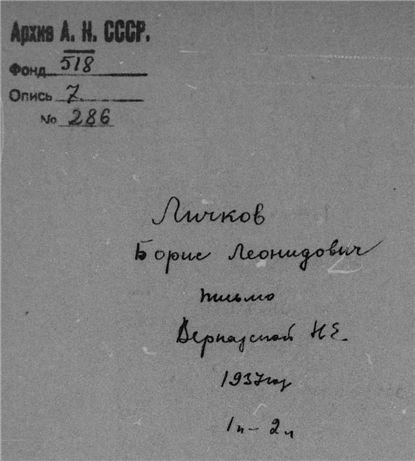 Архив А. Н. СССР.
Фонд 518
Опись 7
№ 286
Личков
Борис Леонидович
письмо
Вернадской Н.Е.
1937 год
1п - 2л